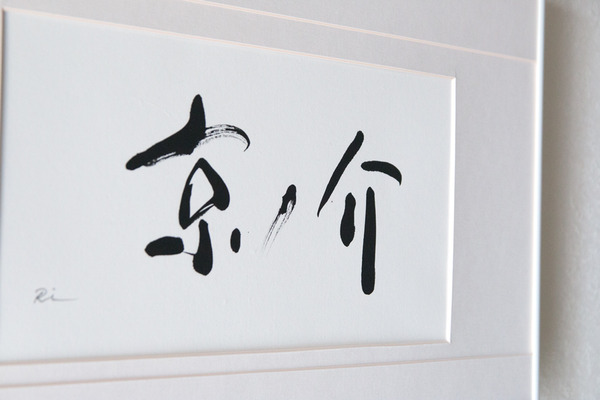 京ノ介
Ri